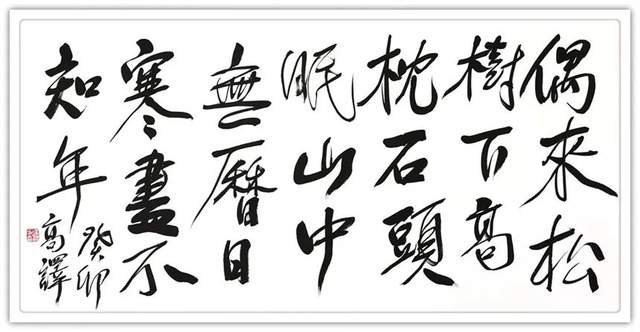 偶來松
樹下高
枕石頭
眠山中
無曆日
寒盡不
知年
癸卯
高譯